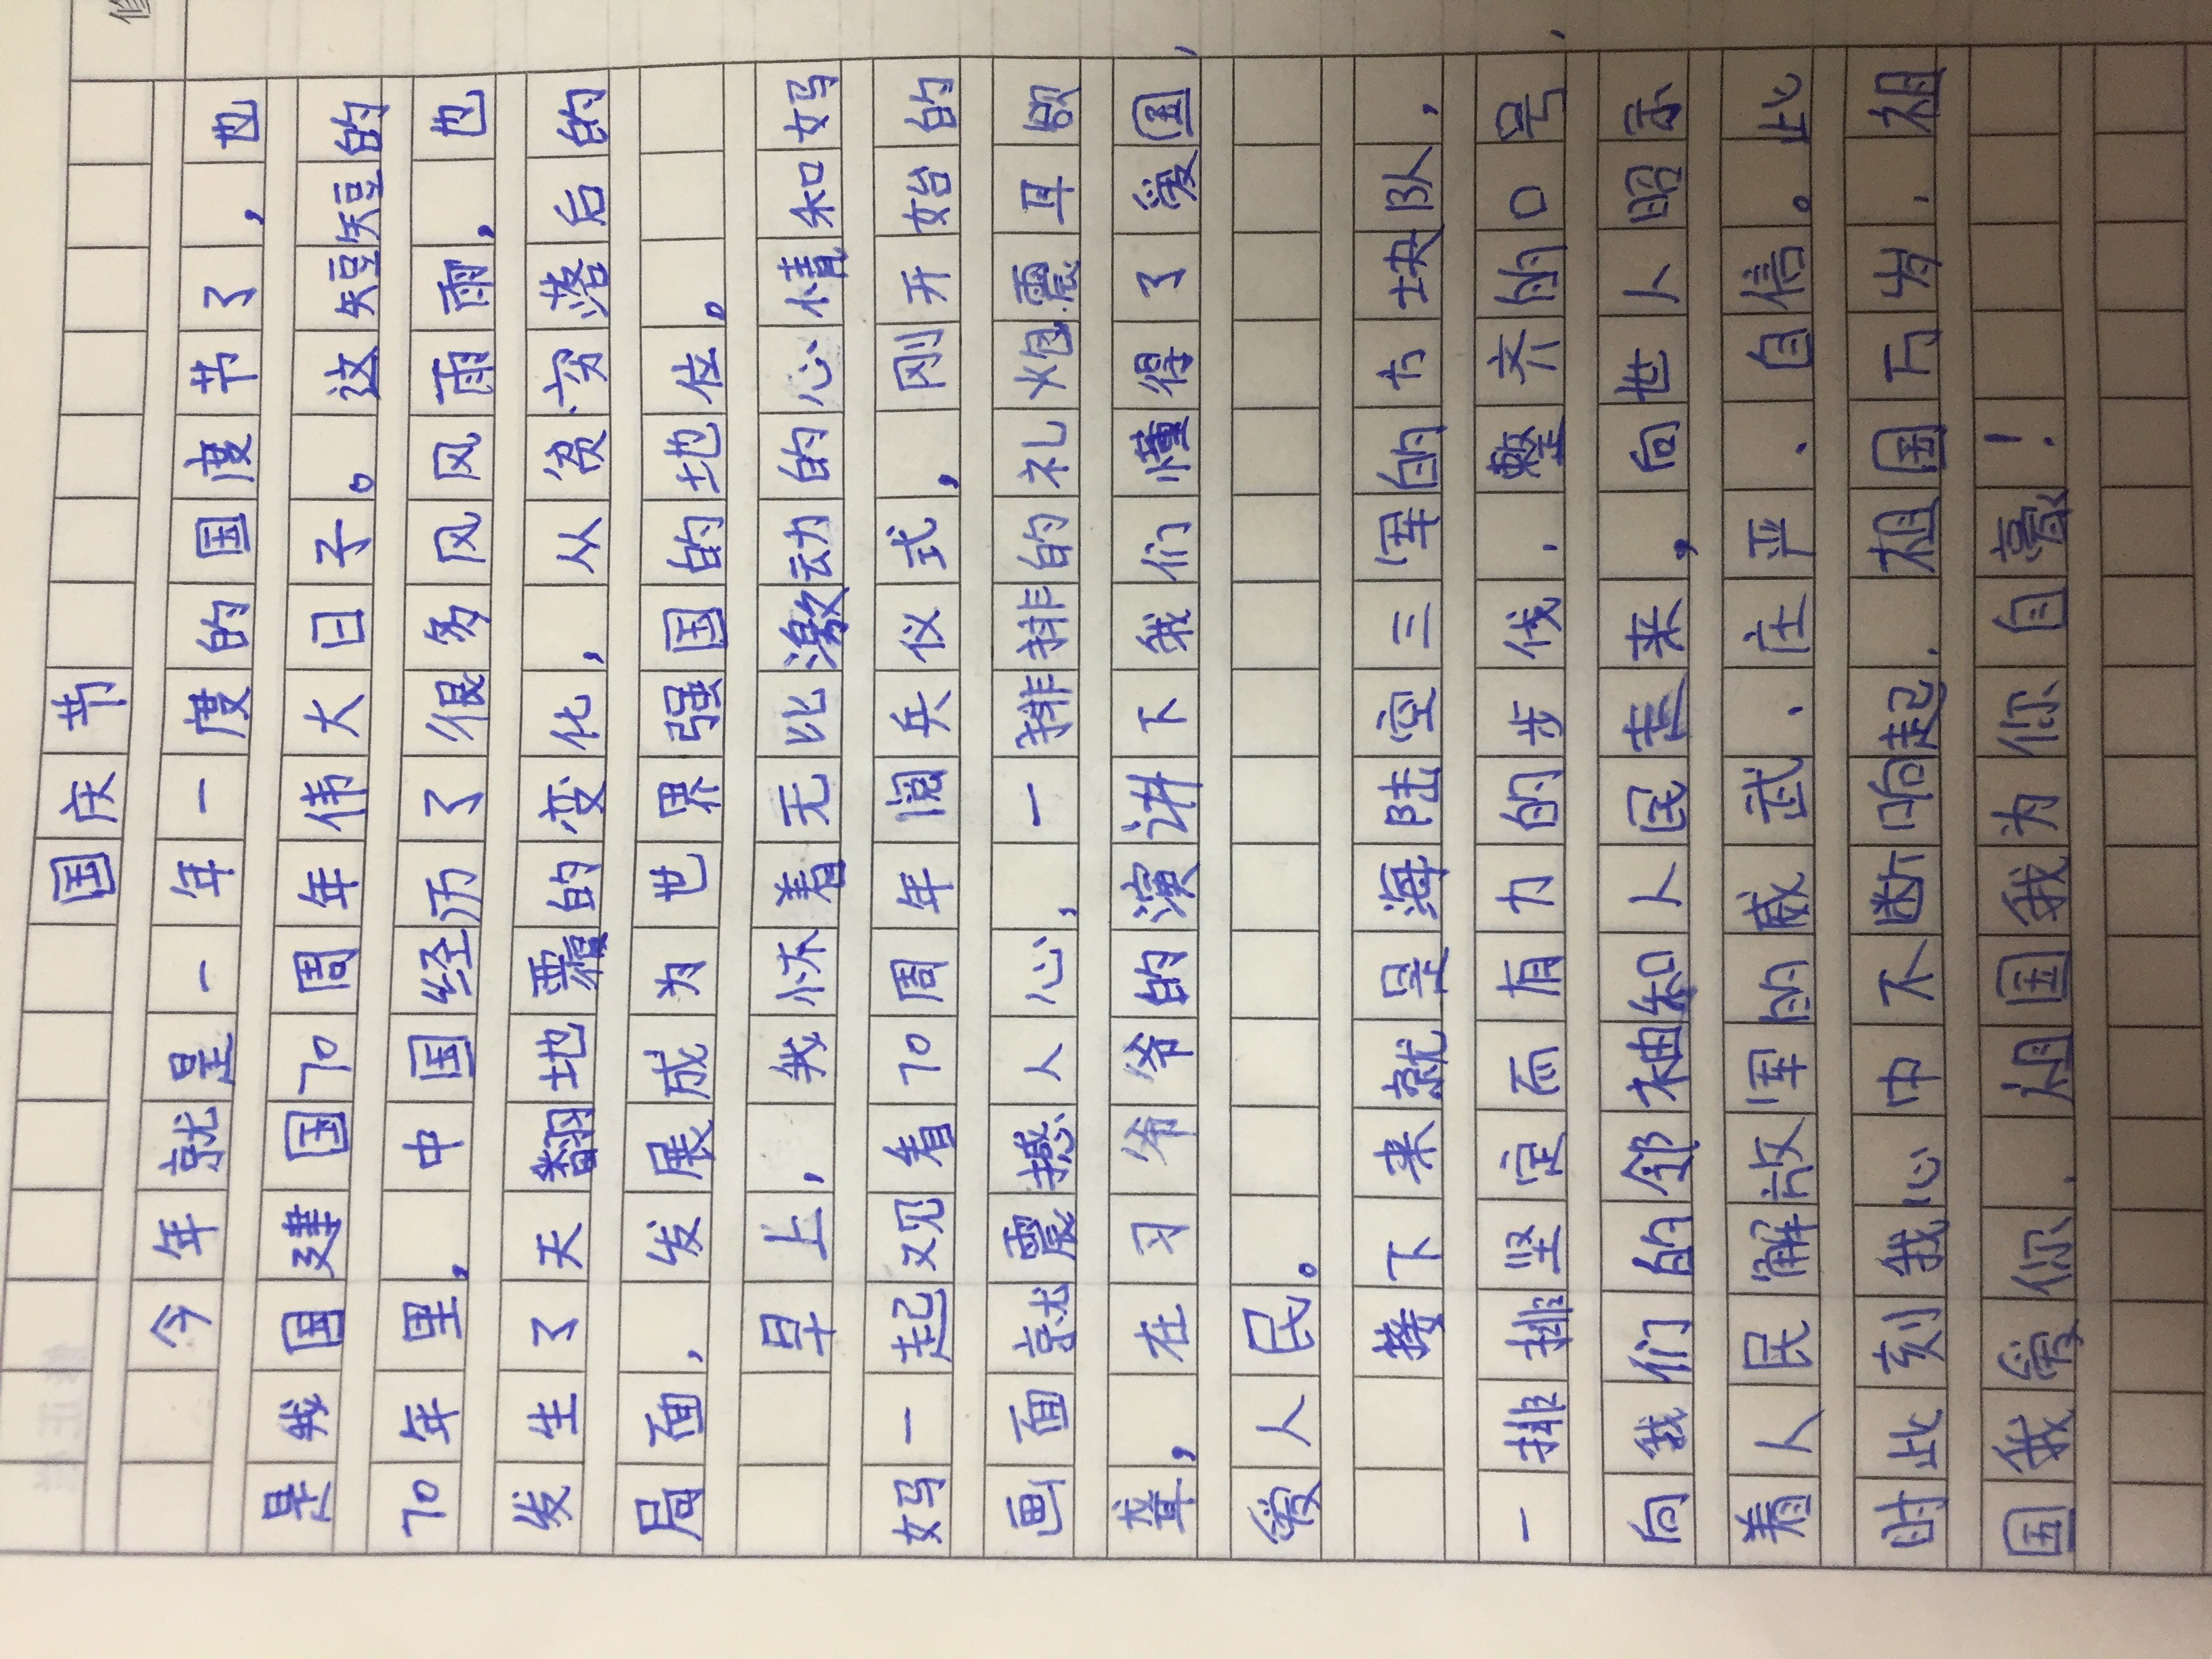 国庆节
今年就是一年一度的国度节了，也
是我国建国70周年伟大日子。这短短的
70年里，中国经历了很多风风雨雨，也
发生了天翻地覆的变化，从贫穷落后的
局面，发展成为世界强国的地位。
早上，我怀着无比激动的心情和妈
妈一起观看70周年阅兵仪式，刚开始的
画面就震撼人心，一排排的礼炮震耳欲
章，在习爷爷的演讲下我们懂得了爱国，
爱人民。
接下来就是海陆空三军的方块队，
一排排坚定而有力的步伐，整齐的口号，
向我们的邻袖和人民走来，向世人昭示
着人民解放军的威武、庄严、自信。此
时此刻我心中不断响起，祖国万岁，祖
国我爱你，祖国我为你自豪！